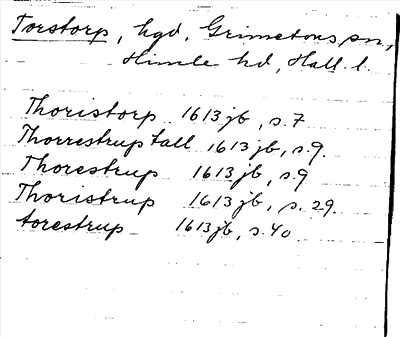 Torstorp, hgd, Grimetons sn,
Himle hd, Hall. l.
Thoristorp 1613 jb, s. 7
Thorrestrup tall 1613 jb, s. 9.
Thorestrup 1613 jb, s. 9
Thoristrup 1613 jb, s. 29.
torestrup 1613 jb, s. 40